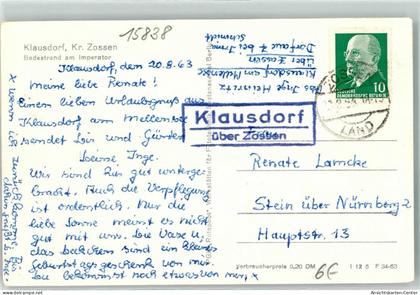 15838
Klausdorf, Kr. Zossen
Badestrand am Imperator
Klausdorf, den 20.8.63
Meine liebe Renate!
Einen lieben Urlaubsgruß aus
Klausdorf am Mellensee
sendet Dir und Günter
Deine Inge.
Wir sind hier gut unterge-
bracht. Auch die Verpflegung
ist ordentlich. Nur die
liebe Sonne meint es nicht
gut mit uns. Die Vase u.
das sind ein kleines
Geburtstagsgeschenk von mir.
Du bekommst noch etwas von mir
Abs. Inge
Klausdorf am Mellensee
über Zossen
Dorfaue 7 bei Irma
Schmidt
Klausdorf
über Zossen
10
DEUTSCHE
DEMOKRATISCHE REPUBLIK
LAND
Renate Lamcke
Stein über Nürnberg 2
Hauptstr. 13
Verbraucherpreis 0,20 DM
I 12 5 F 34-63
6€
www.ansichtskarten-center.de
Ansichtskarten-Center